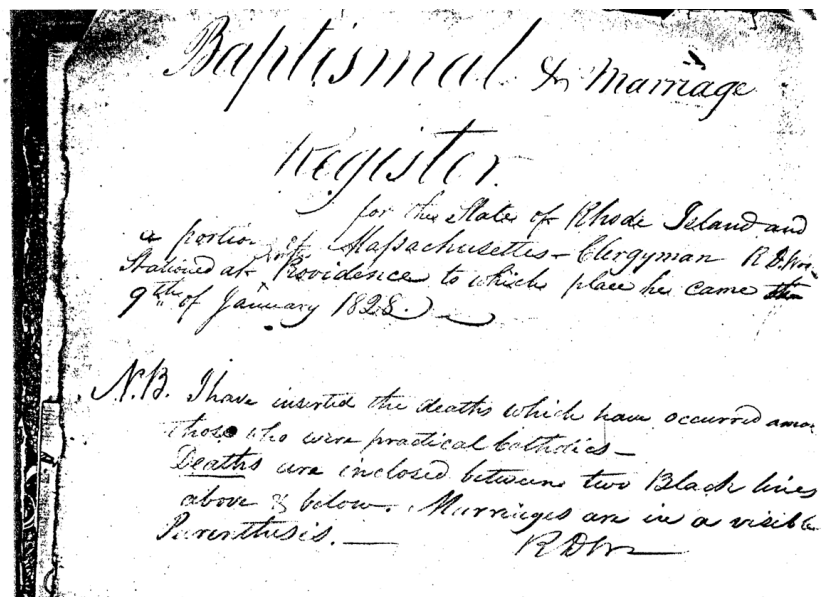 Baptismal & Marriage
Register.
for the States of Rhode Island and
a portion of Massachusettes - Clergyman R. D.
Stationed at Providence to which place he came the
9th of January 1828.
N.B. I have inserted the deaths which have occurred amo
those who were practical Catholics -
Deaths are inclosed between two Black lines
above & below. Marriages are in a visible
Parenthesis. —
R D W